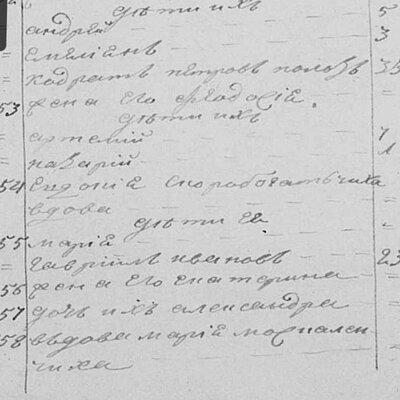 дѣти ихъ 5
андрей 3
емелiянъ
кодратъ петровъ полозъ 35
53 жена его феодосiя
дѣти ихъ
артемiй 7
назарiй 1
54 Евдокiя скоробогатьчиха
вдова
дѣти ея
55 марiя
гаврiилъ ивановъ 23
56 жена его екатерина
57 дочь ихъ александра
58 вьдова марiя
чиха